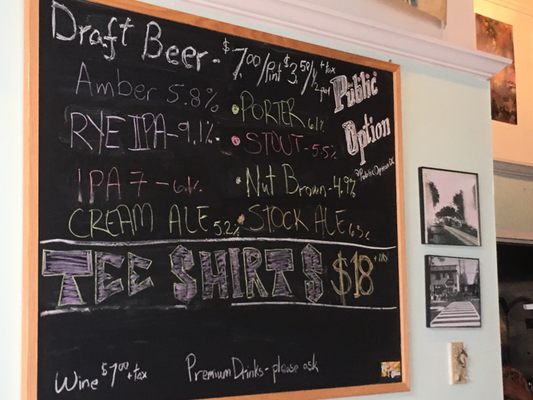 Draft Beer - $7.00/Pint $3.50/½ +tax
Public
Option
Amber 5.8%
• PORTER 6.1%
RYE IPA - 9.1%
• STOUT - 5.5%
IPA 7 - 6.1%
• Nut Brown - 4.9%
CREAM ALE 5.2%
• STOCK ALE
TEE SHIRTS $18
Wine $7.00 + tax
Premium Drinks - please ask